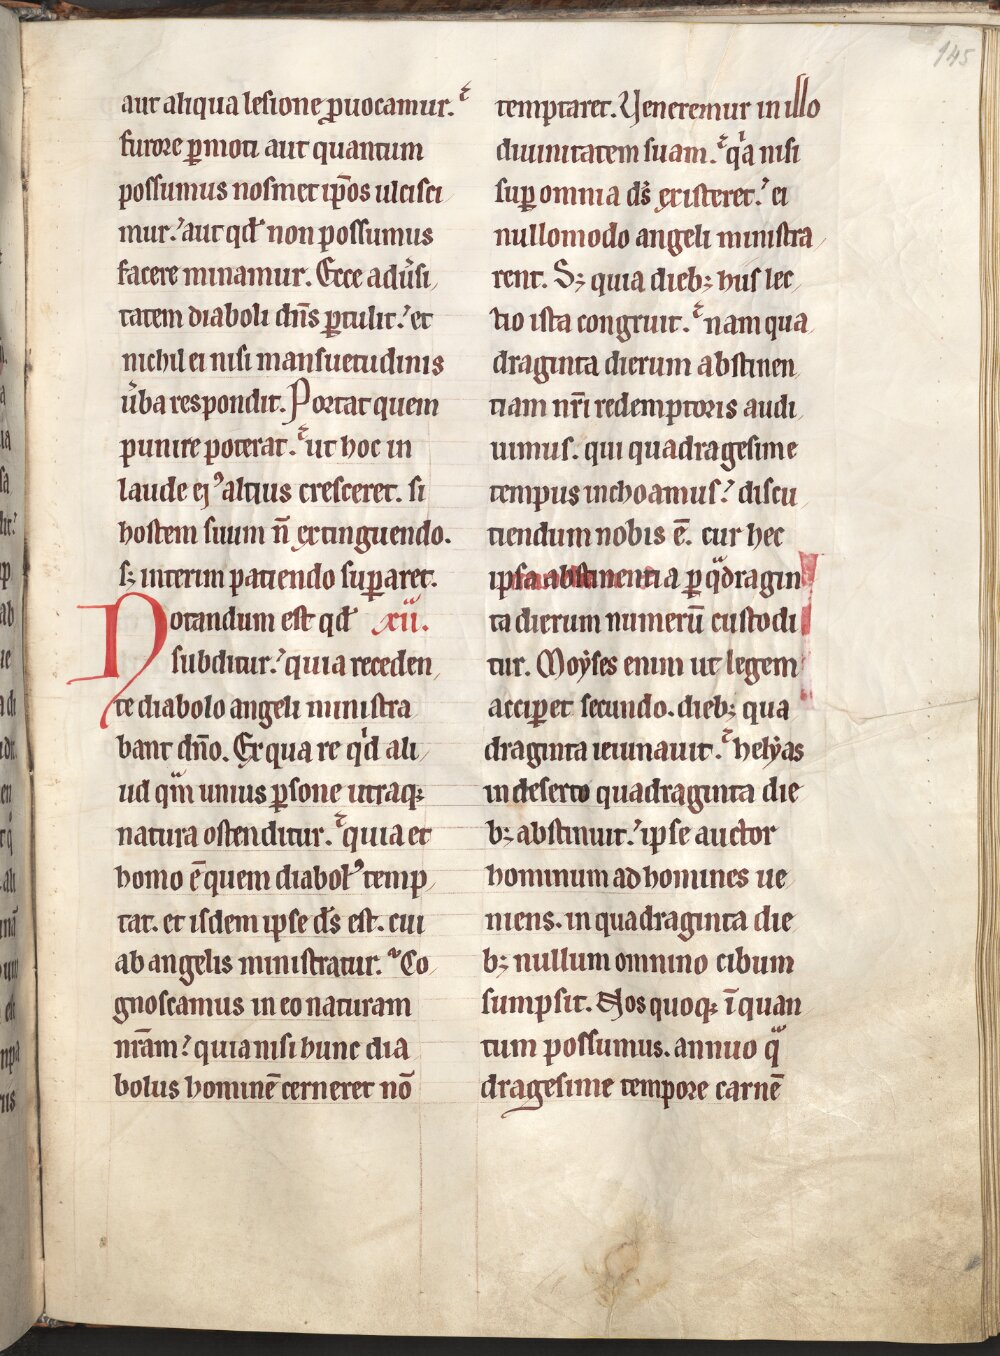 145
aut aliqua lesione ꝓuocamur.
furore ꝑmoti aut quantum
possumus nosmet ip̄os ulcisci
mur. aut qd̄ non possumus
facere minamur. Ecce adu̓si
tatem diaboli dn̄s ꝑtulit. et
nichil ei nisi mansuetudinis
u̓ba respondit. Portat quem
punire poterat. ut hoc in
laude ejꝰ altius cresceret. si
hostem suum n̄ extinguendo.
sꝫ interim patiendo suꝑaret.
Notandum est qd̄ xii.
subditur. quia receden
te diabolo angeli ministra
bant dn̄o. Ex qua re qͥd ali
ud qͣm unius ꝑsone utraqꝫ
natura ostenditur. quia et
homo ē quem diabolꝰ temp
tat. et isdem ipse ds̄ est. cui
ab angelis ministratur. Co
gnoscamus in eo naturam
nr̄am. quia nisi hunc dia
bolus hominē cerneret nō
temptaret. Ueneremur in illo
diuinitatem suam. qͥa nisi
suꝑ omnia ds̄ existeret. ei
nullomodo angeli ministra
rent. Sꝫ quia diebꝫ hiis lec
tio ista congruit. nam qua
draginta dierum abstinen
tiam nr̄i redemptoris audi
uimus. qui quadragesime
tempus inchoamus. discu
tiendum nobis ē. cur hec
ipsa abstinentia ꝑ qͣdragin
ta dierum numerū custodi
tur. Moẏses enim ut legem
acciꝑet secundo. diebꝫ qua
draginta ieiunauit. helẏas
in deserto quadraginta die
bꝫ abstinuit. ipse auctor
hominum ad homines ue
niens. in quadraginta die
bꝫ nullum omnino cibum
sumpsit. Nos quoqꝫ ī quan
tum possumus. annuo qͣ
dragesime tempore carnē